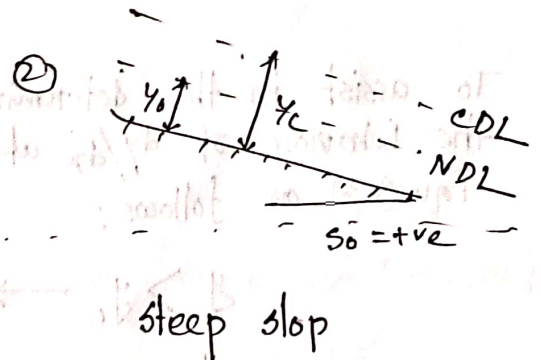 ②
y₀
y_c
CDL
NDL
S₀ = +ve
steep slop